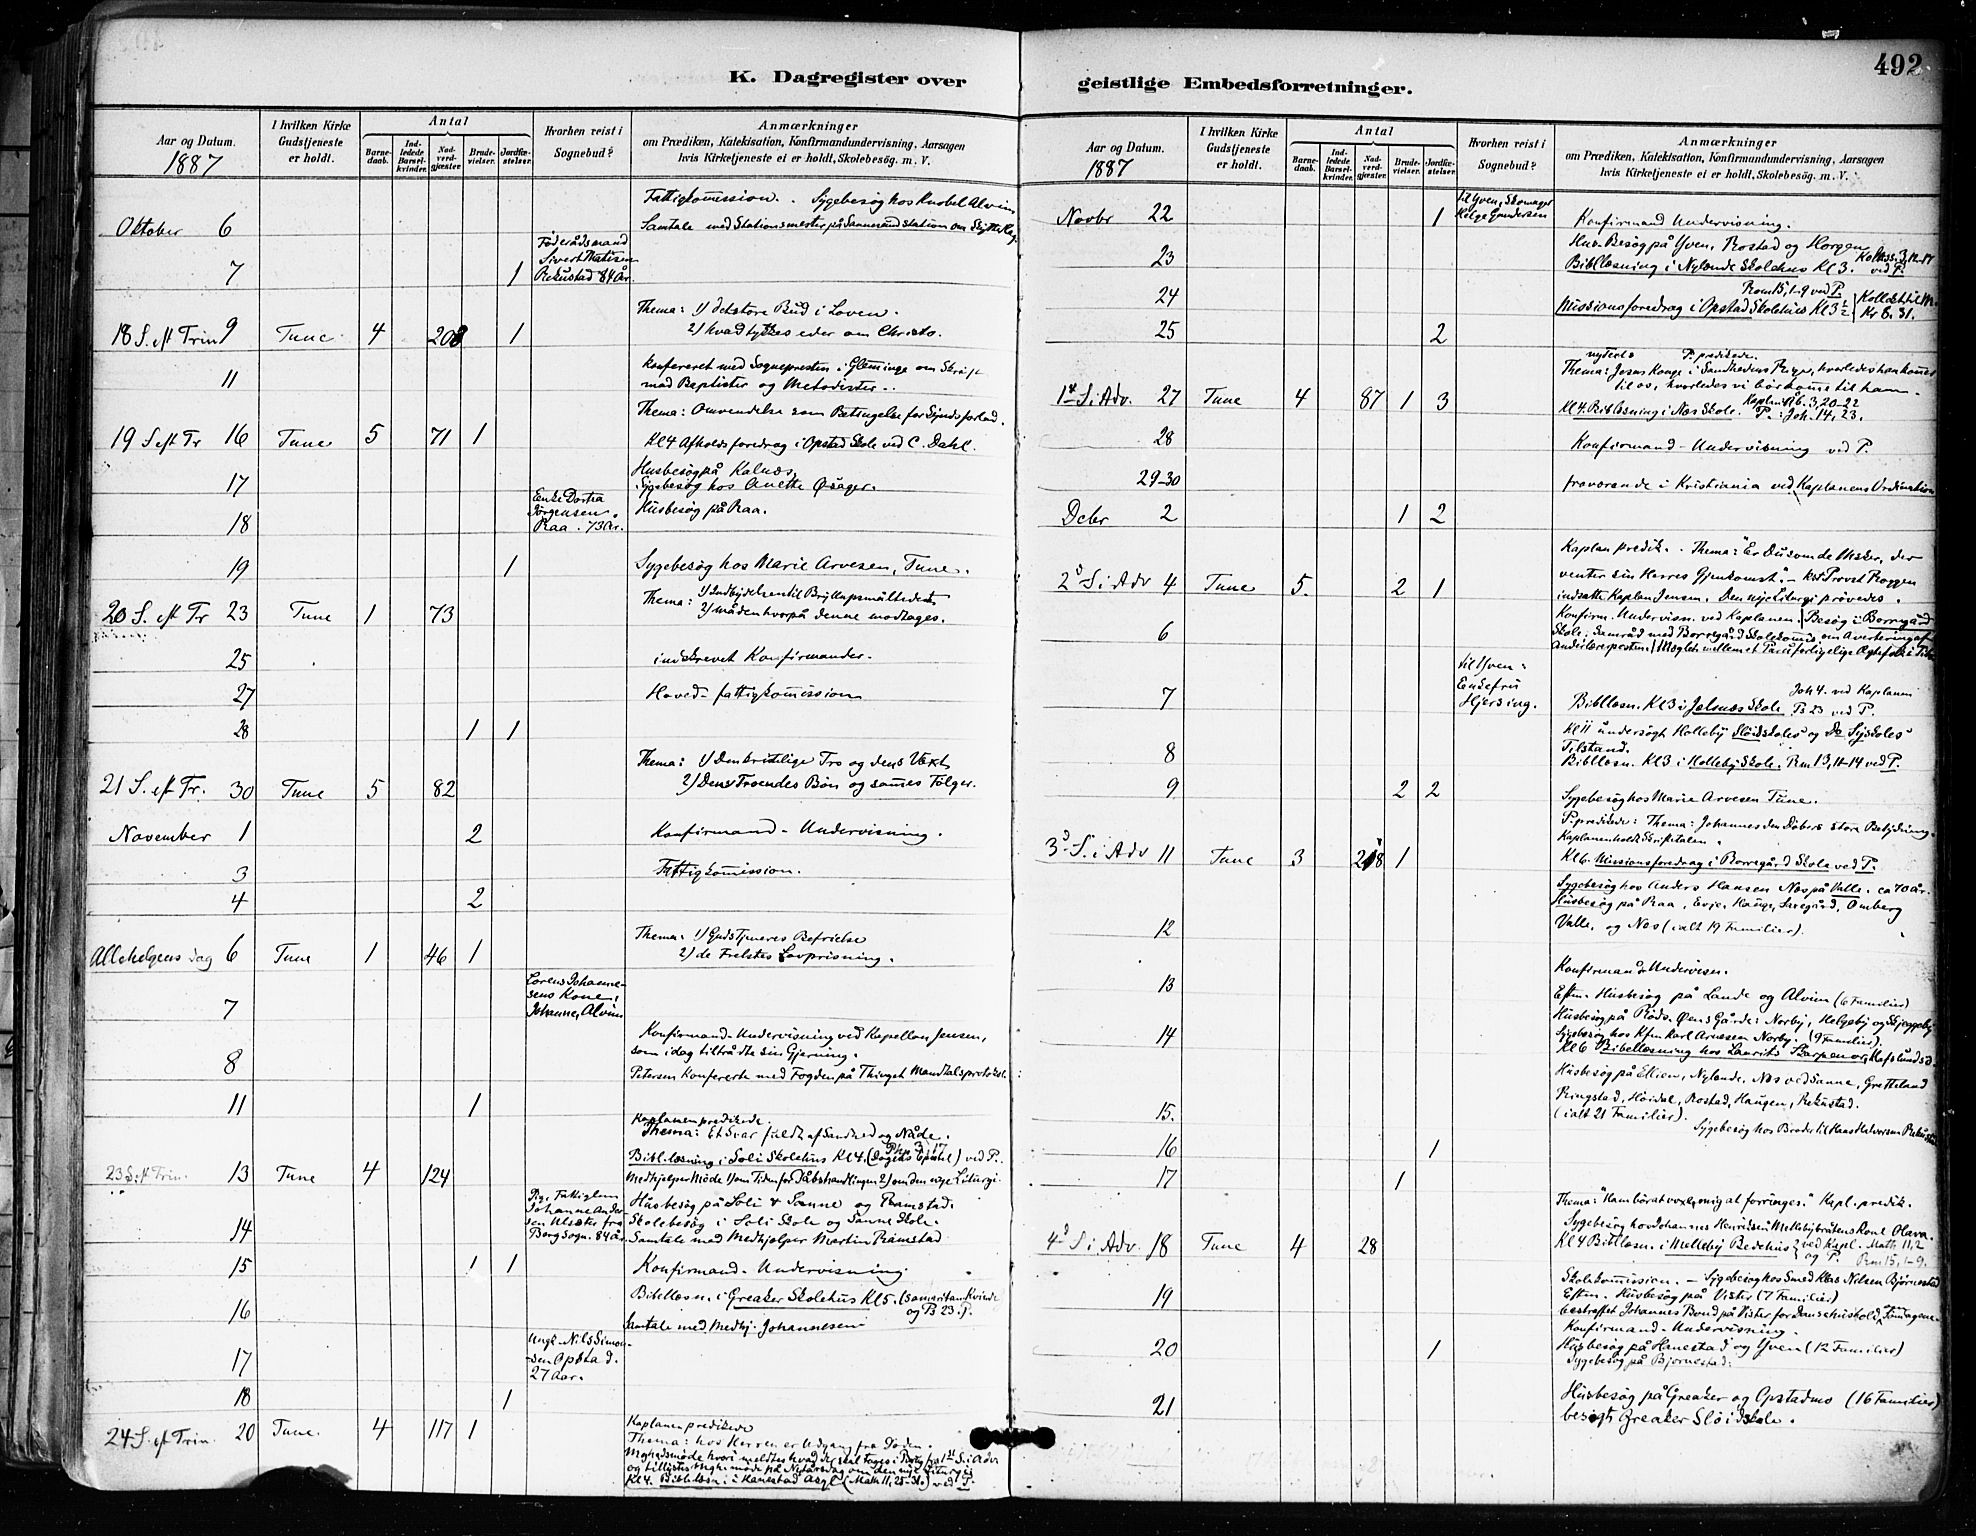 492
K. Dagregister over
geistlige Embedsforretninger.
Aar og Datum.
1887
I hvilken Kirke Gudstjeneste er holdt.
Antal
Barnedaab.
Indledede Barselkvinder.
Nadverdgjester.
Brudevielser.
Jordfæstelser.
Hvorhen reist i Sognebud?
Anmærkninger
om Prædiken, Katekisation, Konfirmandundervisning, Aarsagen
hvis Kirketjeneste ei er holdt, Skolebesøg. m. V.
Fattigkommission. Sygebesøg hos Alvim
Oktober 6 Samtale med Stationsmester på Sannesund Station om
Føderådsmand
7 1 Rekustad 84 År.
Thema: 1) det store Bud i Loven.
18 S. eft Trin 9 Tune 4 208 1 2) hvad tykkes eder om Christo.
11 konfereret med Sognepresten i Glemminge om
mod Baptister og Metodister.
Thema: Omvendelse som Betingelse for Syndsforlad.
19 S eft Tr 16 Tune 5 71 1 Kl 4 Afholdsforedrag i Opstad Skole ved C. Dahl.
Husbesøg på Kalnæs.
17 Sygebesøg hos Anethe
Enke
18 Jørgensen Raa. 73 År. Husbesøg på Raa.
19 1 Sygebesøg hos Marie Arvesen, Tune.
Thema: 1) Indbydelsen til Bryllupsmåltidet
20 S. eft Tr 23 Tune 1 73 2) måden hvorpå denne modtages.
25 indskrevet Konfirmander.
27 Hoved-fattigkommission
28 1 1
Thema: 1) Den kristelige Tro og dens Vækst
21 S. eft Tr. 30 Tune 5 82 2) Den Troendes Bøn og sammes Følger.
November 1 2 Konfirmand-Undervisning.
3 Fattigkommission.
4 2
Thema: 1) Guds Tjeneres Befrielse
Allehelgens dag 6 Tune 1 46 1 2) de Frelstes Lovprisning.
Lorens Johannesens Kone,
7 Johanne, Alvim
Konfirmand-Undervisning ved Kapellan Jensen,
som idag tiltrådte sin Gjerning.
8 Petersen Konfererte med Fogden på Thinget Mandtalsprotokol
11 1
Kaplanen predikede.
Thema: Et Svar fuldt af Sandhed og Nåde.
Bibellæsning i Soli Skolehus Kl 4. (Dagens Epistel) ved P.
23 S. eft Trin. 13 Tune 4 124 Medhjelper Møde 1) om Tiden for Dåbshandlingen 2) om den nye Liturgi.
Johanne Andersen fra
14 Borg Sogn. 84 år. Husbesøg på Soli & Sanne og Ramstad.
Skolebesøg i Soli Skole og Sanne Skole.
Samtale med Medhjelper Martin Ramstad
15 1 1 Konfirmand-Undervisning.
16 Bibellæsn. i Greaker Skolehus Kl 5. (Samaritan. Kvinde
og Ps 23 P.
Samtale med Medhj. Johannesen
Ungk. Nils Simonsen
17 Opstad. 27 Aar.
18 1
24 S. eft Trin. 20 Tune. 4 117 1 Kaplanen predikede
Thema: hos Herren er Udgang fra Døden.
Kl 4. Bibellæsn. i Hanestad (Math 11, 25-30) ved P.
Aar og Datum.
1887
I hvilken Kirke Gudstjeneste er holdt.
Antal
Barnedaab.
Indledede Barselkvinder.
Nadverdgjester.
Brudevielser.
Jordfæstelser.
Hvorhen reist i Sognebud?
Anmærkninger
om Prædiken, Katekisation, Konfirmandundervisning, Aarsagen
hvis Kirketjeneste ei er holdt, Skolebesøg. m. V.
Novbr 22 1 til Yven, Skomager Helge Gundersen Konfirmand Undervisning.
Hus-Besøg på Yven, Rostad og Horgen
23 Bibellæsning i Nylende Skolehus Kl 3. ved P.
Rom 15, 1-9 ved P.
24 Missionsforedrag i Opstad Skolehus Kl 3½ Kollekt til M. Kr 6. 31.
25 2
P. predikede.
Thema: Jesus Konge i Sandhedens Rige, hvorledes han kommer
til os, hvorledes vi bør komme til ham.
1st S. i Adv. 27 Tune 4 87 1 3 Kl 4. Bibellæsning i Næs Skole. P.: Joh. 14, 23.
28 Konfirmand-Undervisning ved P.
29-30 fraværende i Kristiania ved Kaplanens Ordination
Decbr 2 1 2
Kaplan predik. Thema: Er Du som de Vakre, der
venter sin Herres Gjenkomst. Provst Roggen
2d S. i Adv 4 Tune 5. 2 1 indsatte Kaplan Jensen. Den nye Liturgi prøvedes.
Konfirm. Undervisn. ved Kaplanen. Besøg i Borregård
6 Skole; Samråd med Borregård Skolekommis. om
til Yven.
Enkefru
7 Hjersing. Bibellæsn. Kl 3 i Jelsnæs Skole Joh 4. ved Kaplanen
Ps 23 ved P.
Kl 11 undersøgt Holleby Sløidskoles og Do Syskoles
Tilstand.
8 Bibellæsn. Kl 3 i Holleby Skole. Rm 13, 11-14 ved P.
9 2 2 Sygebesøg hos Marie Arvesen Tune.
P. predikede: Thema: Johannes den Døbers store Betydning.
Kaplanen holdt Skriftetalen.
3d S. i Adv 11 Tune 3 218 1 Kl 6. Missionsforedrag i Borregård Skole ved P.
Sygebesøg hos Anders Hansen Næs på Valle. ca 70 år.
Husbesøg på Raa, Evje, Hauge, Omberg
12 Valle, og Næs (ialt 19 Familier).
Konfirmand Undervisn.
13 Eftm. Husbesøg på Lande og Alvim (6 Familier)
Husbesøg på Råds. Øens Gårde: Norby, Helgeby og Skjeggeby
14 Sygebesøg hos Kfm Karl Arnesen Norby. (9 Familier).
Kl 6 Bibellæsning hos Laurits
Husbesøg på Nylende, Næs ved Sanne, Gretteland
Ringstad, Høidal, Rostad, Haugen, Rekustad.
15. (ialt 21 Familier).
Sygebesøg hos Broder til Hans Halvorsen
16 1
17 1
Thema: "Ham bør at voxe, mig at forringes." Kapl. predik.
Sygebesøg hos Johannes Henriksen Kone Olava.
4d S i Adv 18 Tune 4 28 Kl 4 Bibellæsn. i Melleby Bedehus ved Kapl. Math 11, 2
og P. Rm 15, 1-9.
Skolekommission. - Sygebesøg hos Smed Klas Nilsen Bjørnestad
19 Eftm. Husbesøg på Vister (7 Familier)
Konfirmand-Undervisning.
20 1 Husbesøg på Hanestad og Yven (12 Familier)
Sygebesøg på Bjørnestad.
21 Husbesøg på Greaker og Opstadmo (16 Familier)
besøgt Greaker Sløidskole.